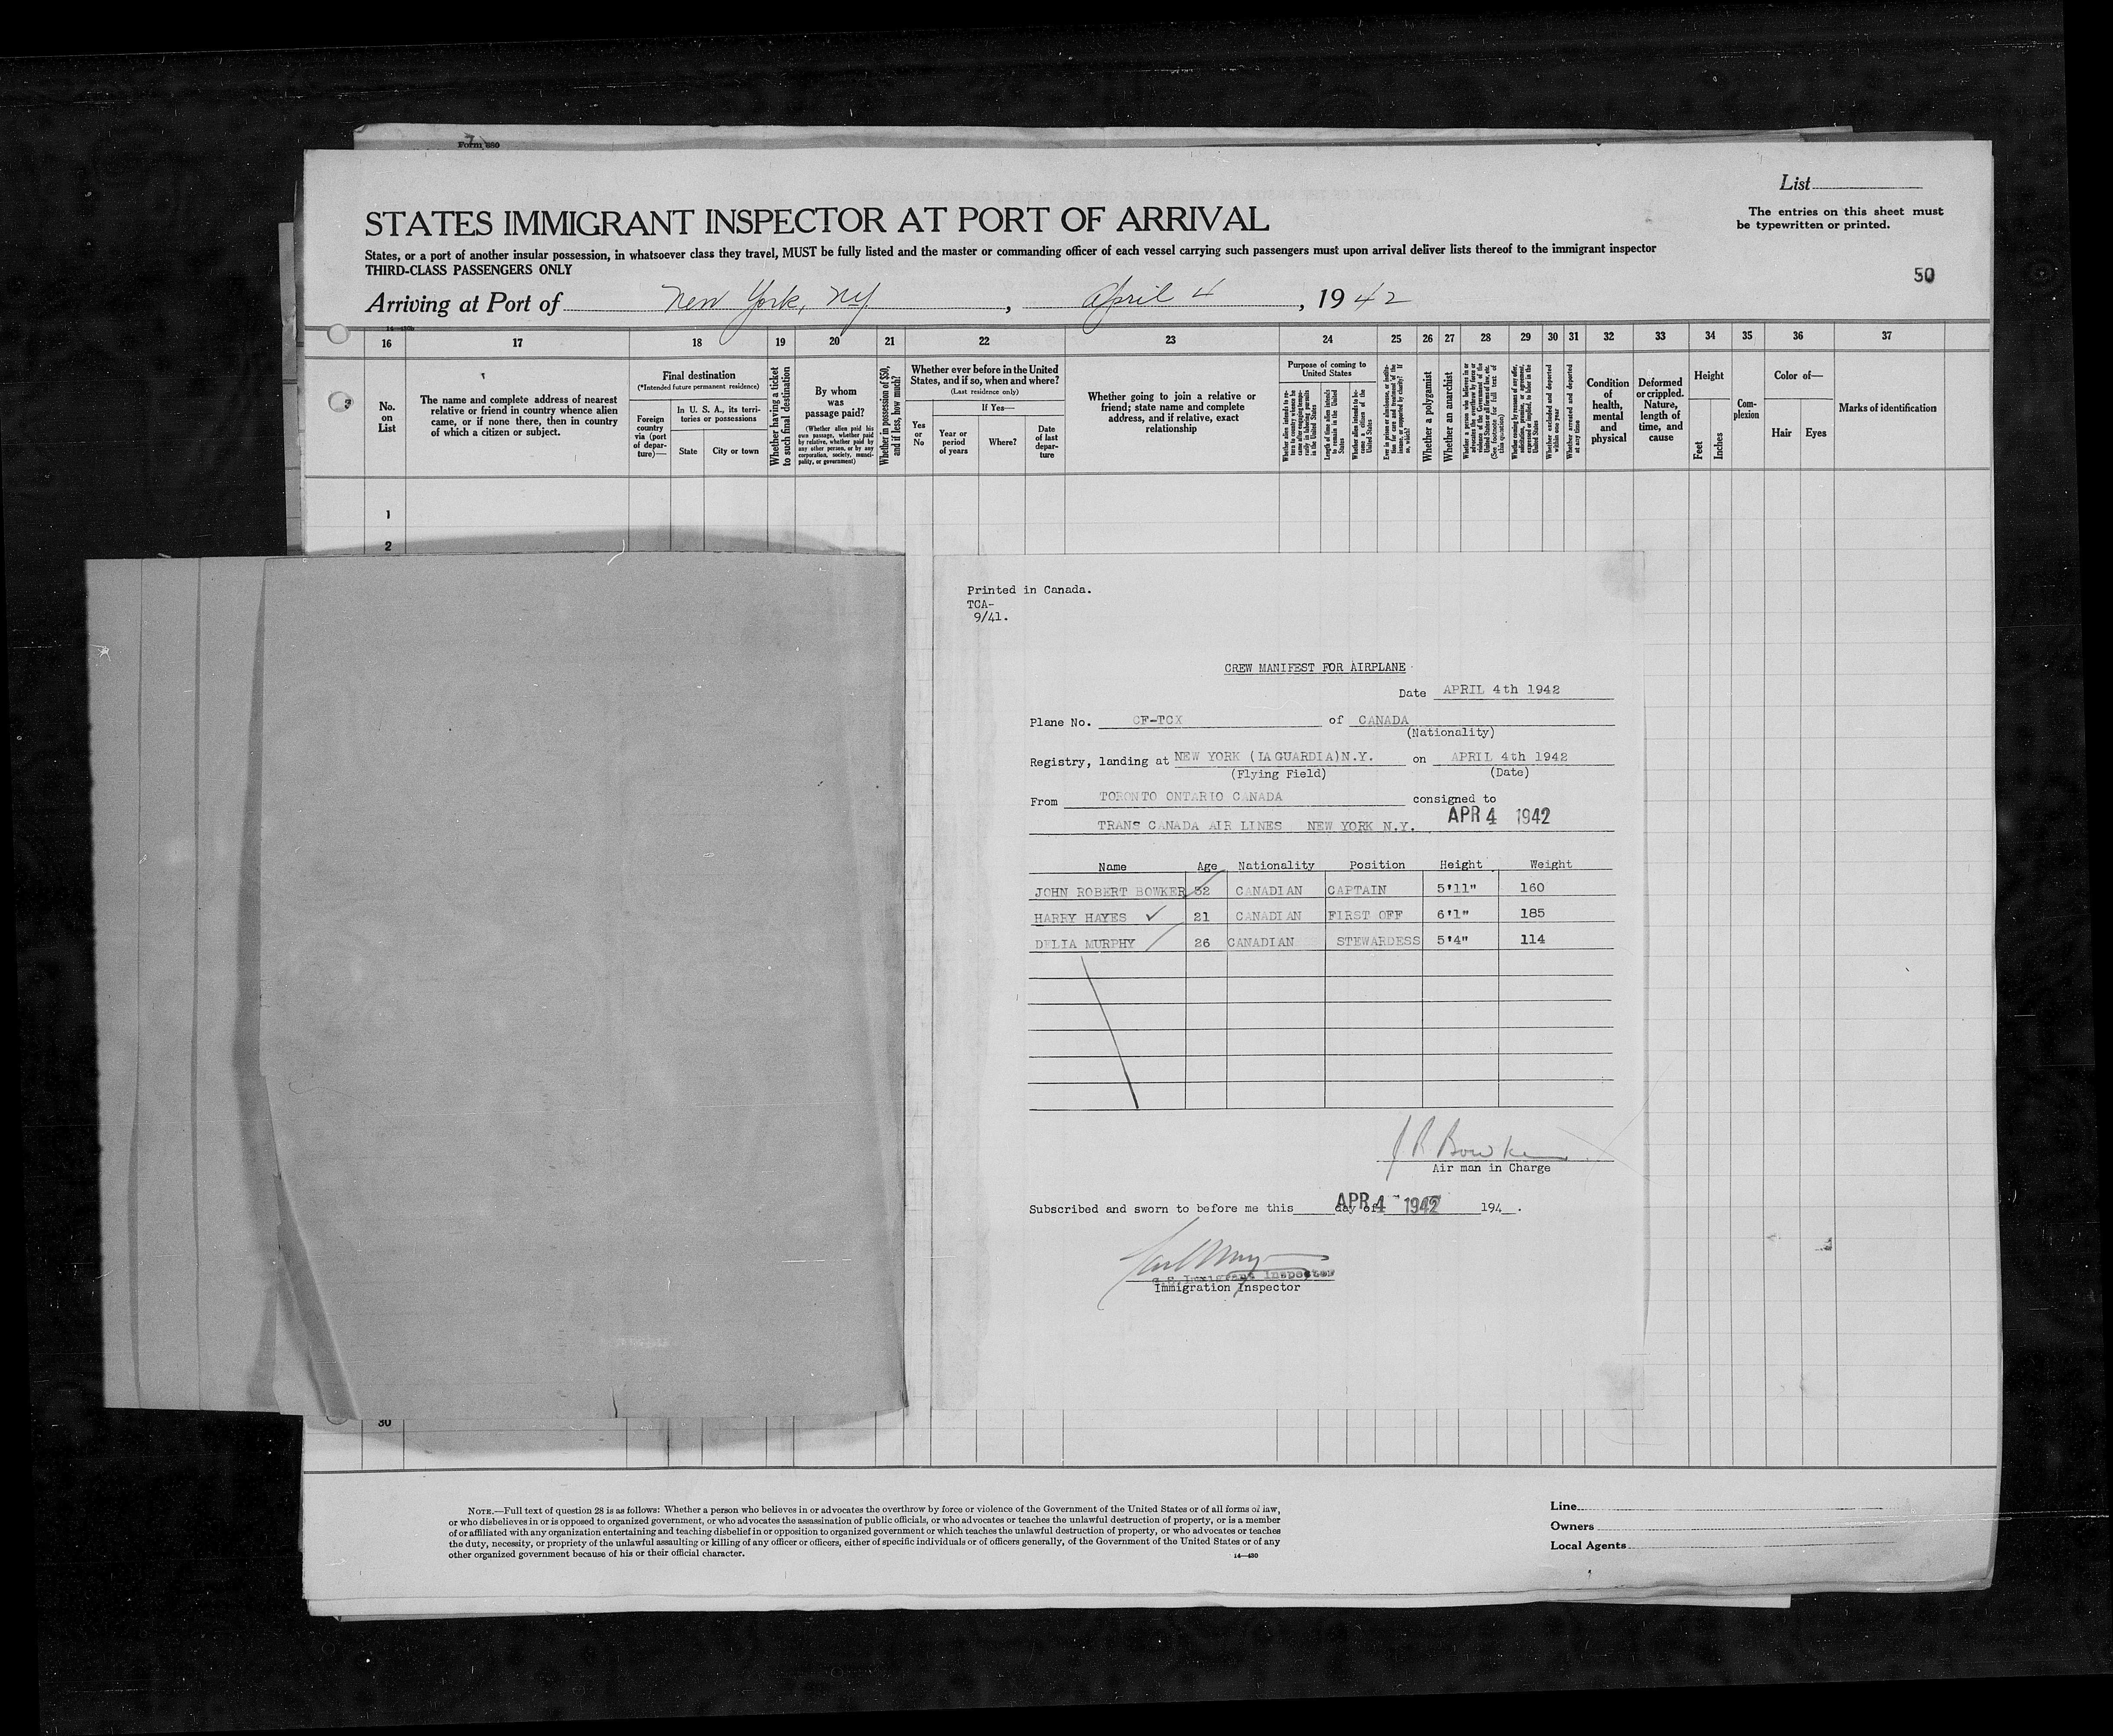 Form 680
List
STATES IMMIGRANT INSPECTOR AT PORT OF ARRIVAL
The entries on this sheet must
be typewritten or printed.
States, or a port of another insular possession, in whatsoever class they travel, MUST be fully listed and the master or commanding officer of each vessel carrying such passengers must upon arrival deliver lists thereof to the immigrant inspector
THIRD-CLASS PASSENGERS ONLY
50
Arriving at Port of New York, NY, April 4, 1942
16 17 18 19 20 21 22 23 24 25 26 27 28 29 30 31 32 33 34 35 36 37
No.
on
List
The name and complete address of nearest
relative or friend in country whence alien
came, or if none there, then in country
of which a citizen or subject.
Final destination
(*Intended future permanent residence)
Foreign
country
via (port
of depar-
ture)—
In U. S. A., its terri-
tories or possessions
State
City or town
Whether having a ticket
to such final destination
By whom
was
passage paid?
(Whether alien paid his
own passage, whether paid
by relative, whether paid by
any other person, or by any
corporation, society, munici-
pality, or government)
Whether in possession of $50,
and if less, how much?
Whether ever before in the United
States, and if so, when and where?
(Last residence only)
If Yes—
Yes
or
No
Year or
period
of years
Where?
Date
of last
depar-
ture
Whether going to join a relative or
friend; state name and complete
address, and if relative, exact
relationship
Purpose of coming to
United States
Length of time alien intends
to remain in the United
States
Whether alien intends to be-
come a citizen of the
United States
Whether a polygamist
Whether an anarchist
Whether excluded and deported
within one year
Whether arrested and deported
at any time
Condition
of
health,
mental
and
physical
Deformed
or crippled.
Nature,
length of
time, and
cause
Height
Feet
Inches
Com-
plexion
Color of—
Hair
Eyes
Marks of identification
1
2
Printed in Canada.
TCA-
9/41.
CREW MANIFEST FOR AIRPLANE
Date APRIL 4th 1942
Plane No. CF-TCX of CANADA
(Nationality)
Registry, landing at NEW YORK (LAGUARDIA)N.Y. on APRIL 4th 1942
(Flying Field) (Date)
From TORONTO ONTARIO CANADA consigned to
TRANS CANADA AIR LINES NEW YORK N.Y. APR 4 1942
Name Age Nationality Position Height Weight
JOHN ROBERT BOWKER 32 CANADIAN CAPTAIN 5'11" 160
HARRY HAYES ✓ 21 CANADIAN FIRST OFF 6'1" 185
DELIA MURPHY 26 CANADIAN STEWARDESS 5'4" 114
J R Bowker
Air man in Charge
Subscribed and sworn to before me this day of APR 4 1942 194 .
U.S. Immigrant Inspector
Immigration Inspector
30
NOTE.—Full text of question 28 is as follows: Whether a person who believes in or advocates the overthrow by force or violence of the Government of the United States or of all forms of law,
or who disbelieves in or is opposed to organized government, or who advocates the assassination of public officials, or who advocates or teaches the unlawful destruction of property, or is a member
of or affiliated with any organization entertaining and teaching disbelief in or opposition to organized government or which teaches the unlawful destruction of property, or who advocates or teaches
the duty, necessity, or propriety of the unlawful assaulting or killing of any officer or officers, either of specific individuals or of officers generally, of the Government of the United States or of any
other organized government because of his or their official character.
14—430
Line
Owners
Local Agents